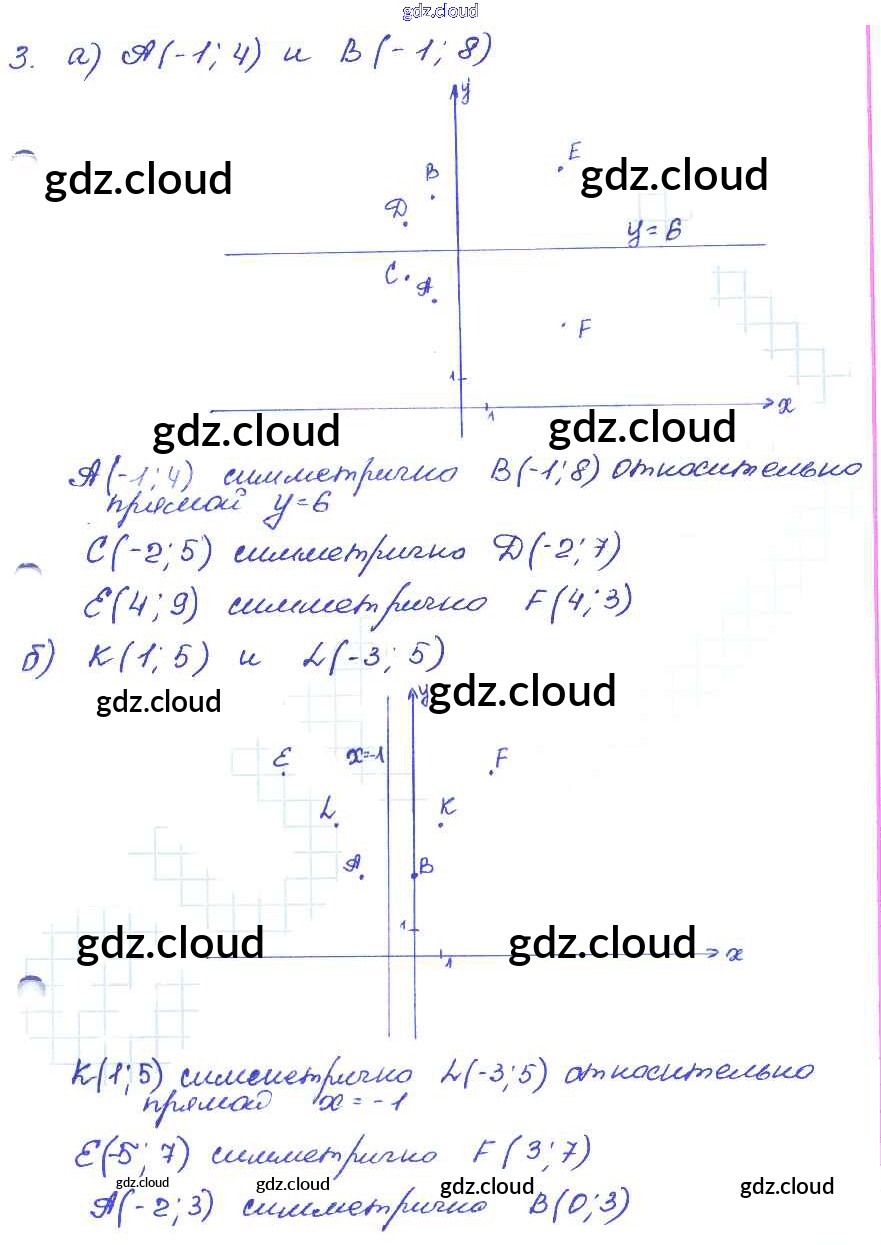 gdz.cloud
3. а) A(-1; 4) и B(-1; 8)
y
E
B
gdz.cloud
gdz.cloud
D
y=6
C
A
F
1
x
1
gdz.cloud
gdz.cloud
A(-1; 4) симметрично B(-1; 8) относительно
прямой y=6
C(-2; 5) симметрично D(-2; 7)
E(4; 9) симметрично F(4; 3)
б) K(1; 5) и L(-3; 5)
gdz.cloud
y
gdz.cloud
E
x=-1
F
L
K
A
B
1
gdz.cloud
gdz.cloud
x
1
K(1; 5) симметрично L(-3; 5) относительно
прямой x=-1
E(-5; 7) симметрично F(3; 7)
gdz.cloud
gdz.cloud
gdz.cloud
gdz.cloud
A(-2; 3) симметрично B(0; 3)